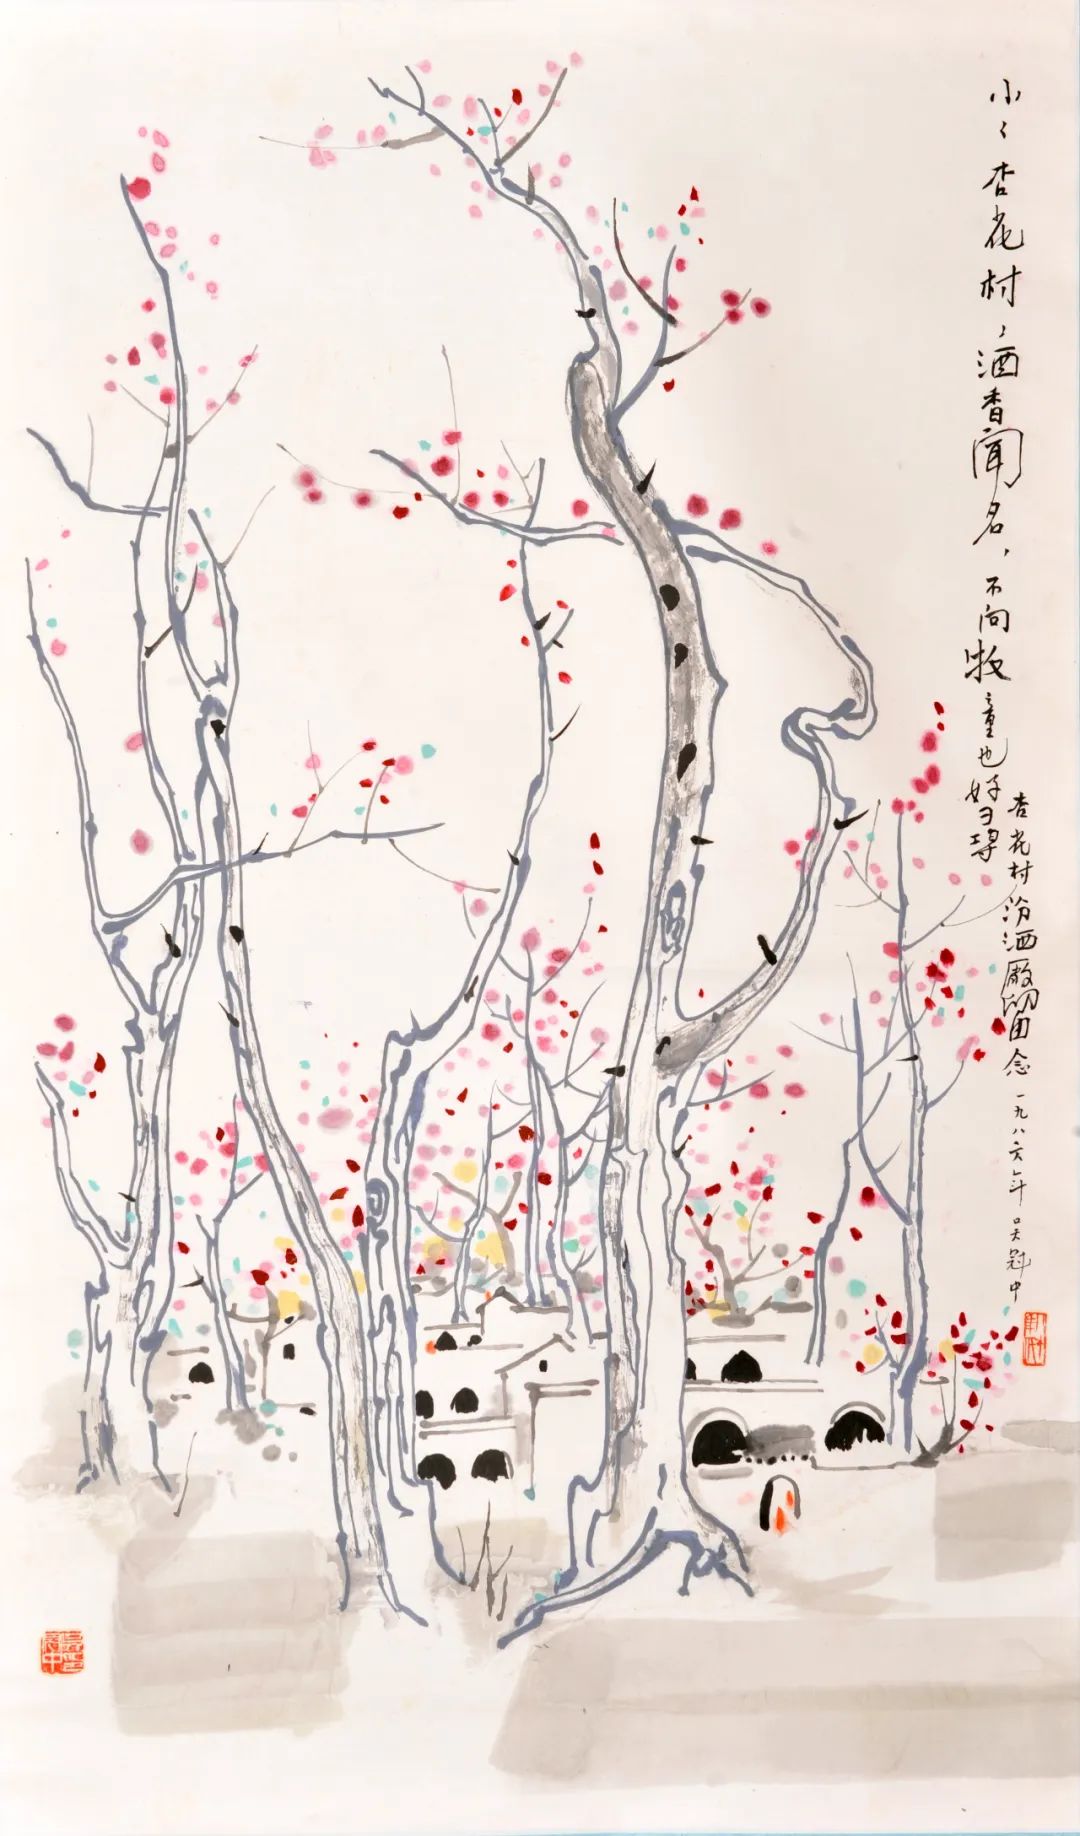 小〻杏花村，酒香闻名，不问牧童也好寻
杏花村汾酒厰留念
一九八六年 吴冠中